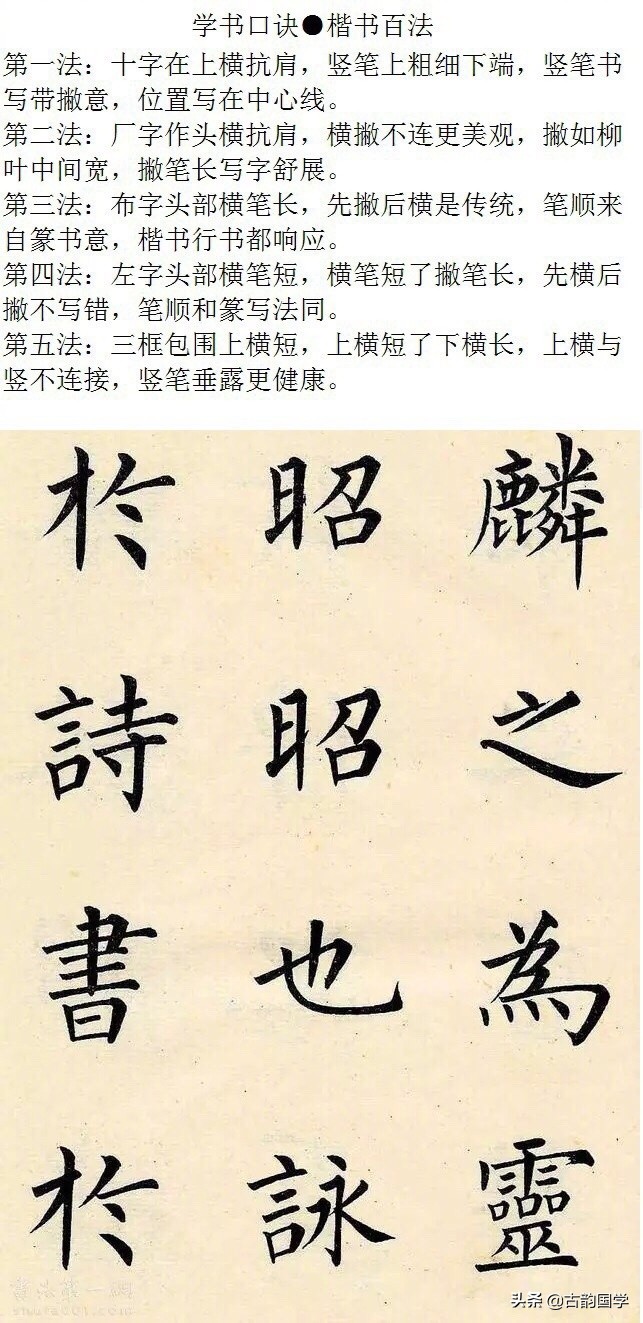 学书口诀●楷书百法
第一法：十字在上横抗肩，竖笔上粗细下端，竖笔书
写带撇意，位置写在中心线。
第二法：厂字作头横抗肩，横撇不连更美观，撇如柳
叶中间宽，撇笔长写字舒展。
第三法：布字头部横笔长，先撇后横是传统，笔顺来
自篆书意，楷书行书都响应。
第四法：左字头部横笔短，横笔短了撇笔长，先横后
撇不写错，笔顺和篆写法同。
第五法：三框包围上横短，上横短了下横长，上横与
竖不连接，竖笔垂露更健康。
麟之為靈
昭昭也詠
於詩書於
头条@古韵国学